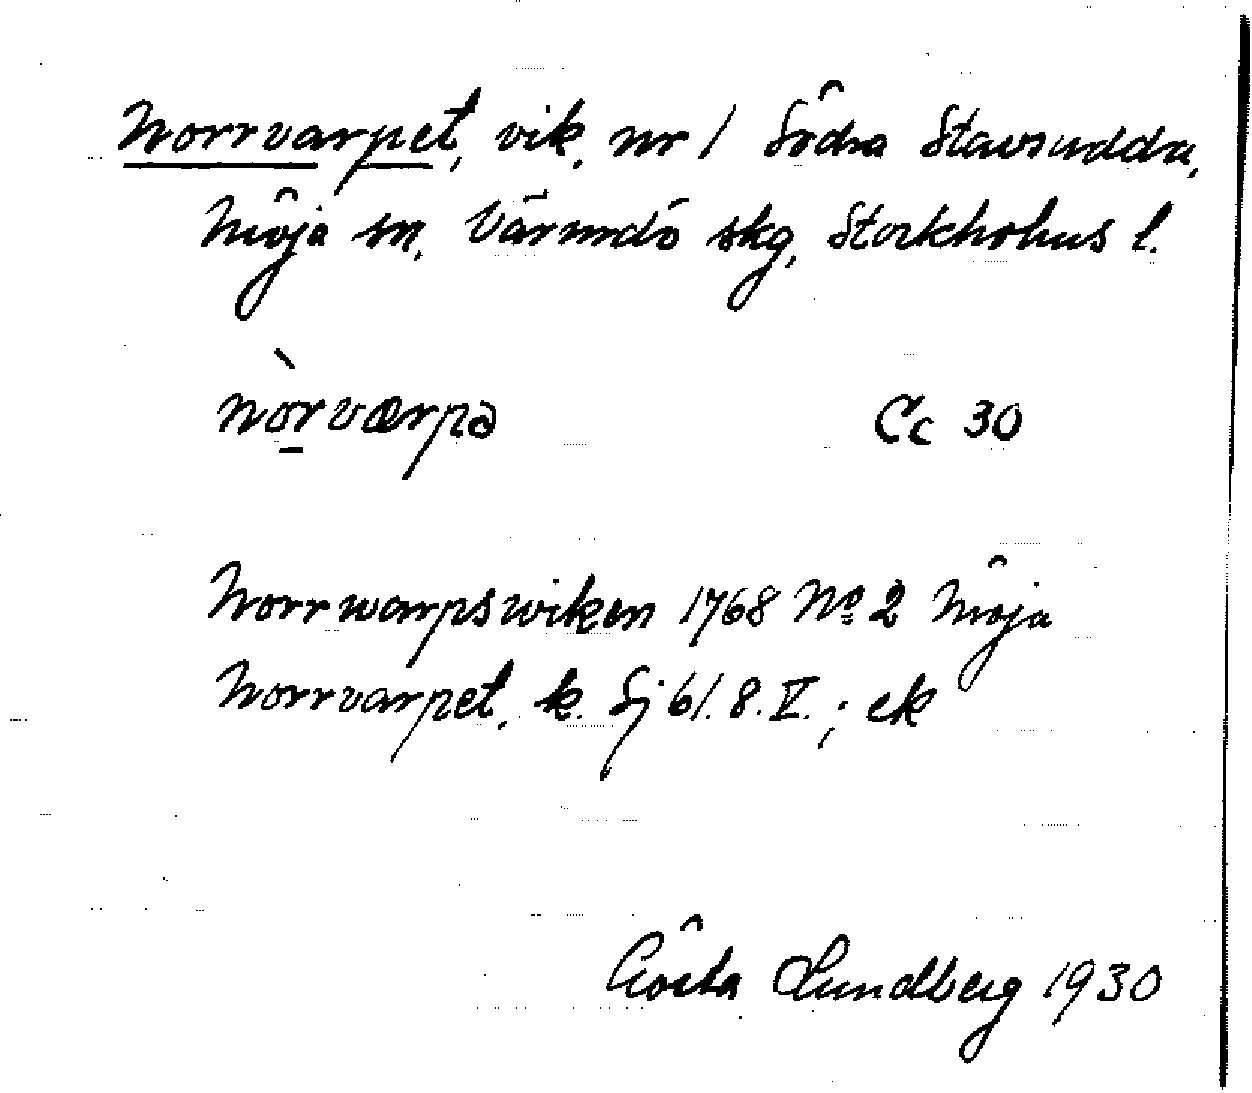 Norrvarpet, vik, nr 1 Södra Stavsudda,
Möja sn, Värmdö skg, Stockholms l.
nòrværpə Cc 30
Norrwarpswiken 1768 No 2 Möja
Norrvarpet, k. Sj 61. 8. V.; ek
Gösta Lundberg 1930